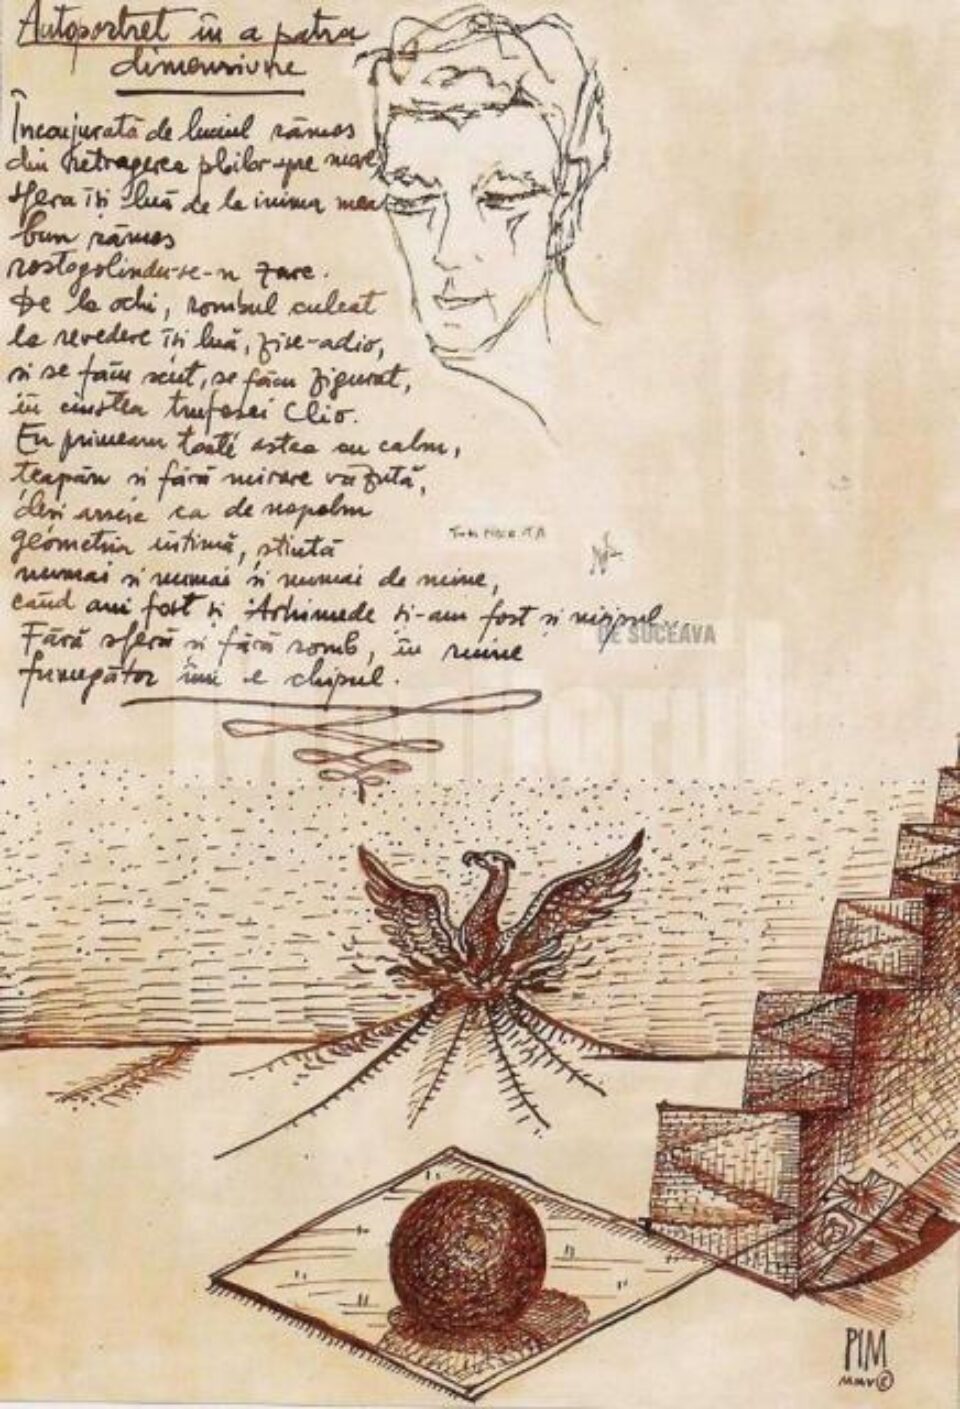 Autoportret în a patra
dimensiune
Încojurată de luciul rămas
din retragerea ploilor spre mare,
sfera își luă de la inima mea
bun rămas
rostogolindu-se-n zare.
De la ochi, rombul culcat
la revedere își luă, zise-adio,
și se făcu scut, se făcu zigurat,
în cinstea trufașei Clio.
Eu primeam toate astea cu calm,
țeapăn și fără mirare văzută,
deși arsese ca de napalm
geometria intimă, știută
numai și numai și numai de mine,
când am fost și Arhimede și-am fost și nisipul...
Fără sferă și fără romb, în mine
fumegător îmi e chipul.
DE SUCEAVA
PIM